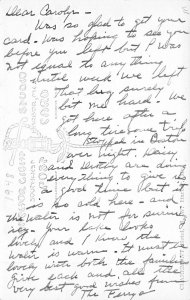 Dear Carolyn -
Was so glad to get your
card - Was hoping to see you
before you left but I was
not equal to any thing
until week we left
that bug surely
hit me hard - We
got here after a
long tiresome trip
Stopped in Boston
over night,
and are doing
everything to give us
a good time but it
is so cold here - and
the water is not for swim-
ing - Your lake looks
lovely and I know the
water is warm - It must be
lovely with both the families
Give each and all the
very best good wishes from
The Perrys